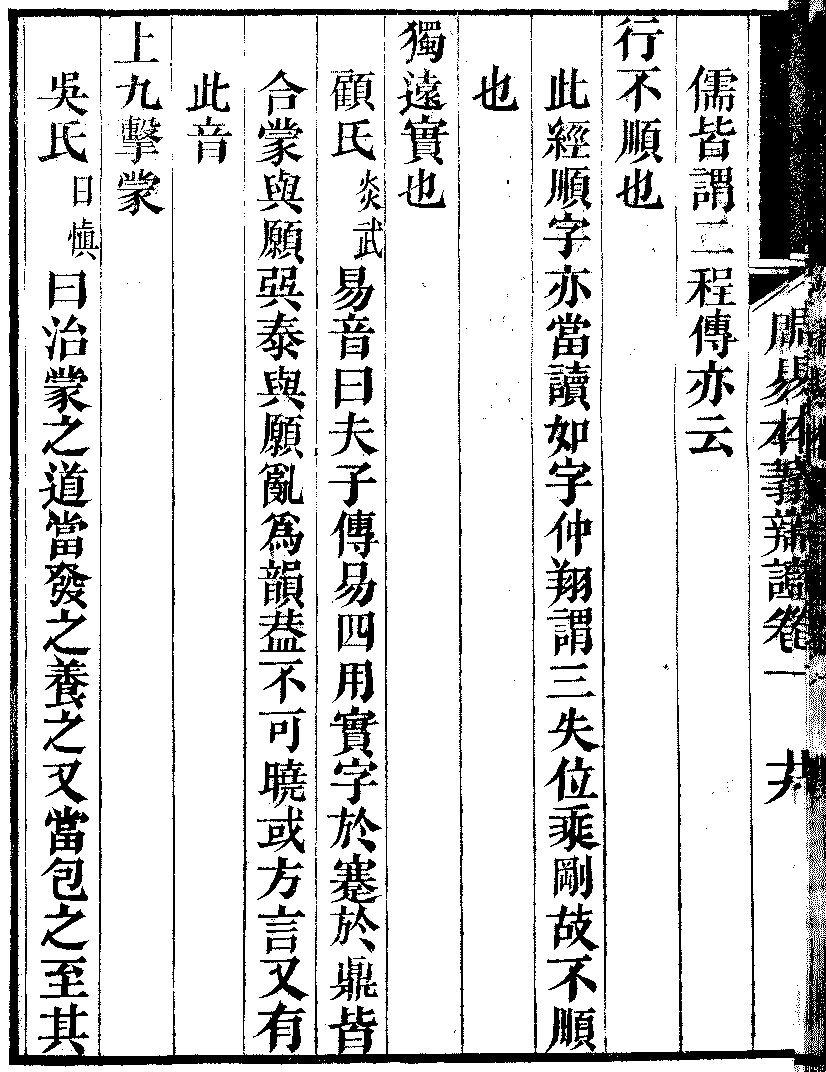 周易本義辯證卷一
儒皆謂二程傳亦云
行不順也
此經順字亦當讀如字仲翔謂三失位乗剛故不順
也
獨遠實也
顧氏炎武易音曰夫子傳易四用實字於蹇於鼎皆
合蒙與願巽泰與願亂爲韻葢不可曉或方言又有
此音
上九擊蒙
吳氏曰慎曰治蒙之道當發之養之又當包之至其